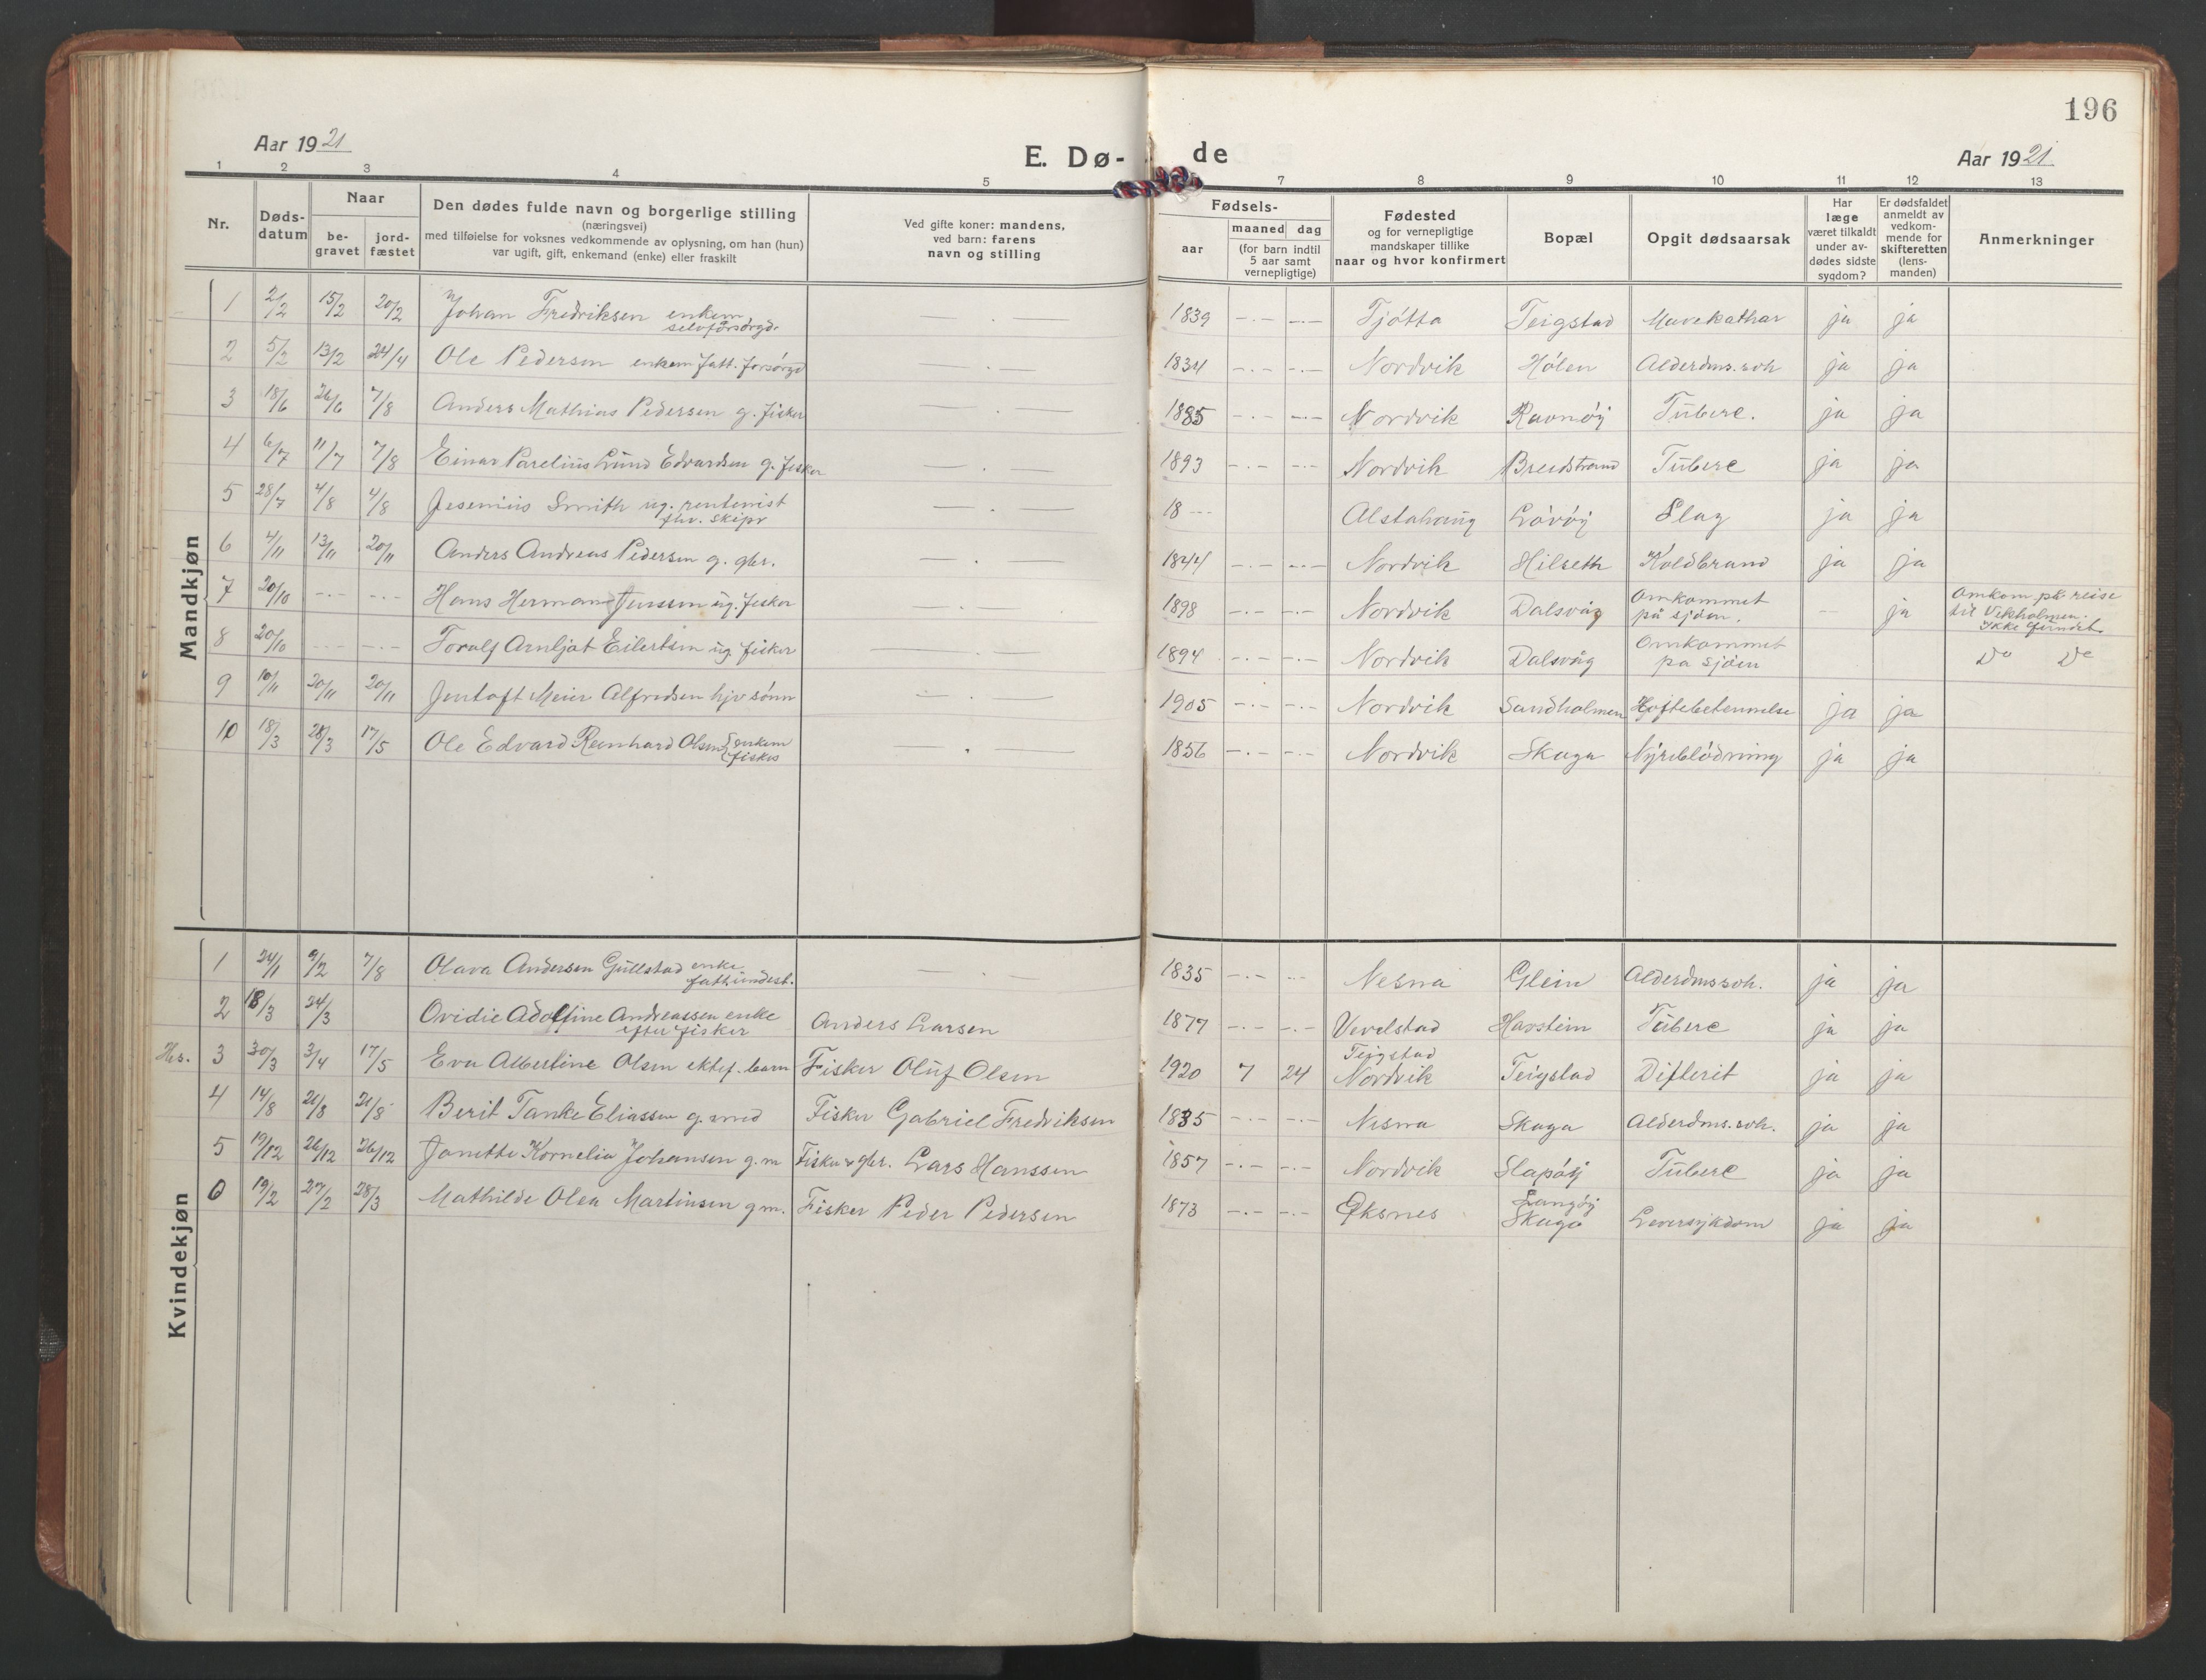 196
Aar 1921
E. Dø-
de
Aar 1921
1 2 3 4 5 7 8 9 10 11 12 13
Nr.
Døds-
datum
Naar
be-
gravet
jord-
fæstet
Den dødes fulde navn og borgerlige stilling
(næringsvei)
med tilføielse for voksnes vedkommende av oplysning, om han (hun)
var ugift, gift, enkemand (enke) eller fraskilt
Ved gifte koner: mandens,
ved barn: farens
navn og stilling
Fødsels-
aar
maaned dag
(for barn indtil
5 aar samt
vernepligtige)
Fødested
og for vernepligtige
mandskaper tillike
naar og hvor konfirmert
Bopæl
Opgit dødsaarsak
Har
læge
været tilkaldt
under av-
dødes sidste
sygdom?
Er dødsfaldet
anmeldt av
vedkom-
mende for
skifteretten
(lens-
manden)
Anmerkninger
Mandkjøn
1 2/2 15/2 20/2 Johan Fredriksen enkem. — . — 1839 -.- -.- Tjøtta Teigstad Mavekathar ja ja
selvforsørgd.
2 5/2 13/2 24/4 Ole Pedersen enkem fatt. forsørgd — . — 1834 -.- -.- Nordvik Hølen Alderdms.svh ja ja
3 18/6 26/6 7/8 Anders Mathias Pedersen g. fisker — . — 1885 -.- -.- Nordvik Ravnøy Tuberc. ja ja
4 6/7 11/7 7/8 Einar Parelius Lund Edvardsen g. fisker — . — 1893 -.- -.- Nordvik Breidstrand Tuberc ja ja
5 28/7 4/8 4/8 Jesenius Smith ug. rentenist — . — 18 --- Alstahaug Løvøy Slag ja ja
fhv. skipr
6 4/11 13/11 20/11 Anders Andreas Pedersen g. gbr. — . — 1844 -.- -.- Nordvik Hilseth Koldbrand ja ja
7 20/10 -.- -.- Hans Herman Jenssen ug. fisker — . — 1898 -.- -.- Nordvik Dalsvåg Omkommet — ja Omkom på reise
på sjøen. til Vekholmen.
Ikke fundet.
8 20/10 --- -.- Toralf Arnljot Eilertsen ug. fisker — . — 1894 -.- -.- Nordvik Dalsvåg Omkommet Do Do
på sjøen
9 10/11 20/11 20/11 Jentoft Meier Alfredsen hjv sønn — . — 1905 -.- -.- Nordvik Sandholmen Hoftebetennelse ja ja
10 18/3 28/3 17/5 Ole Edvard Reinhard Olsen enkem — . — 1856 -.- -.- Nordvik Skaga Nyreblødning ja ja
fisker
Kvindekjøn
1 24/1 9/2 7/8 Olava Andersen Gullstad enke — . — 1835 -.- --- Nesna Glein Alderdmssvh. ja ja
fattiundest.
2 18/3 24/3 Ovidie Adolfine Andreassen enke Anders Larsen 1877 -.- -.- Vevelstad Havstein Tuberc ja ja
efter fisker
Teigstad
Her. 3 30/3 3/4 17/5 Eva Albertine Olsen ektef. barn Fisker Oluf Olsen 1920 7 24 Nordvik Teigstad Difterit ja ja
4 14/8 21/8 21/8 Berit Tanke Eliassen g. med Fisker Gabriel Fredriksen 1835 -.- -.- Nesna Skaga Alderdms.svh. ja ja
5 19/12 26/12 26/12 Janette Kornelia Johansen g. m Fisker & gbr. Lars Hanssen 1857 -.- -.- Nordvik Slapøy Tuberc ja ja
Langøy
6 19/2 27/2 28/3 Mathilde Olea Martinsen g m. Fisker Peder Pedersen 1873 -.- -.- Øksnes Skaga Leversykdom ja ja